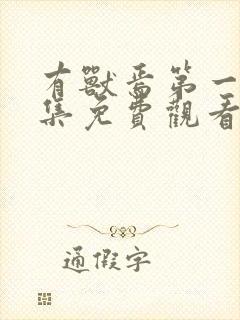 有獸焉第一
集免費觀看
通假字